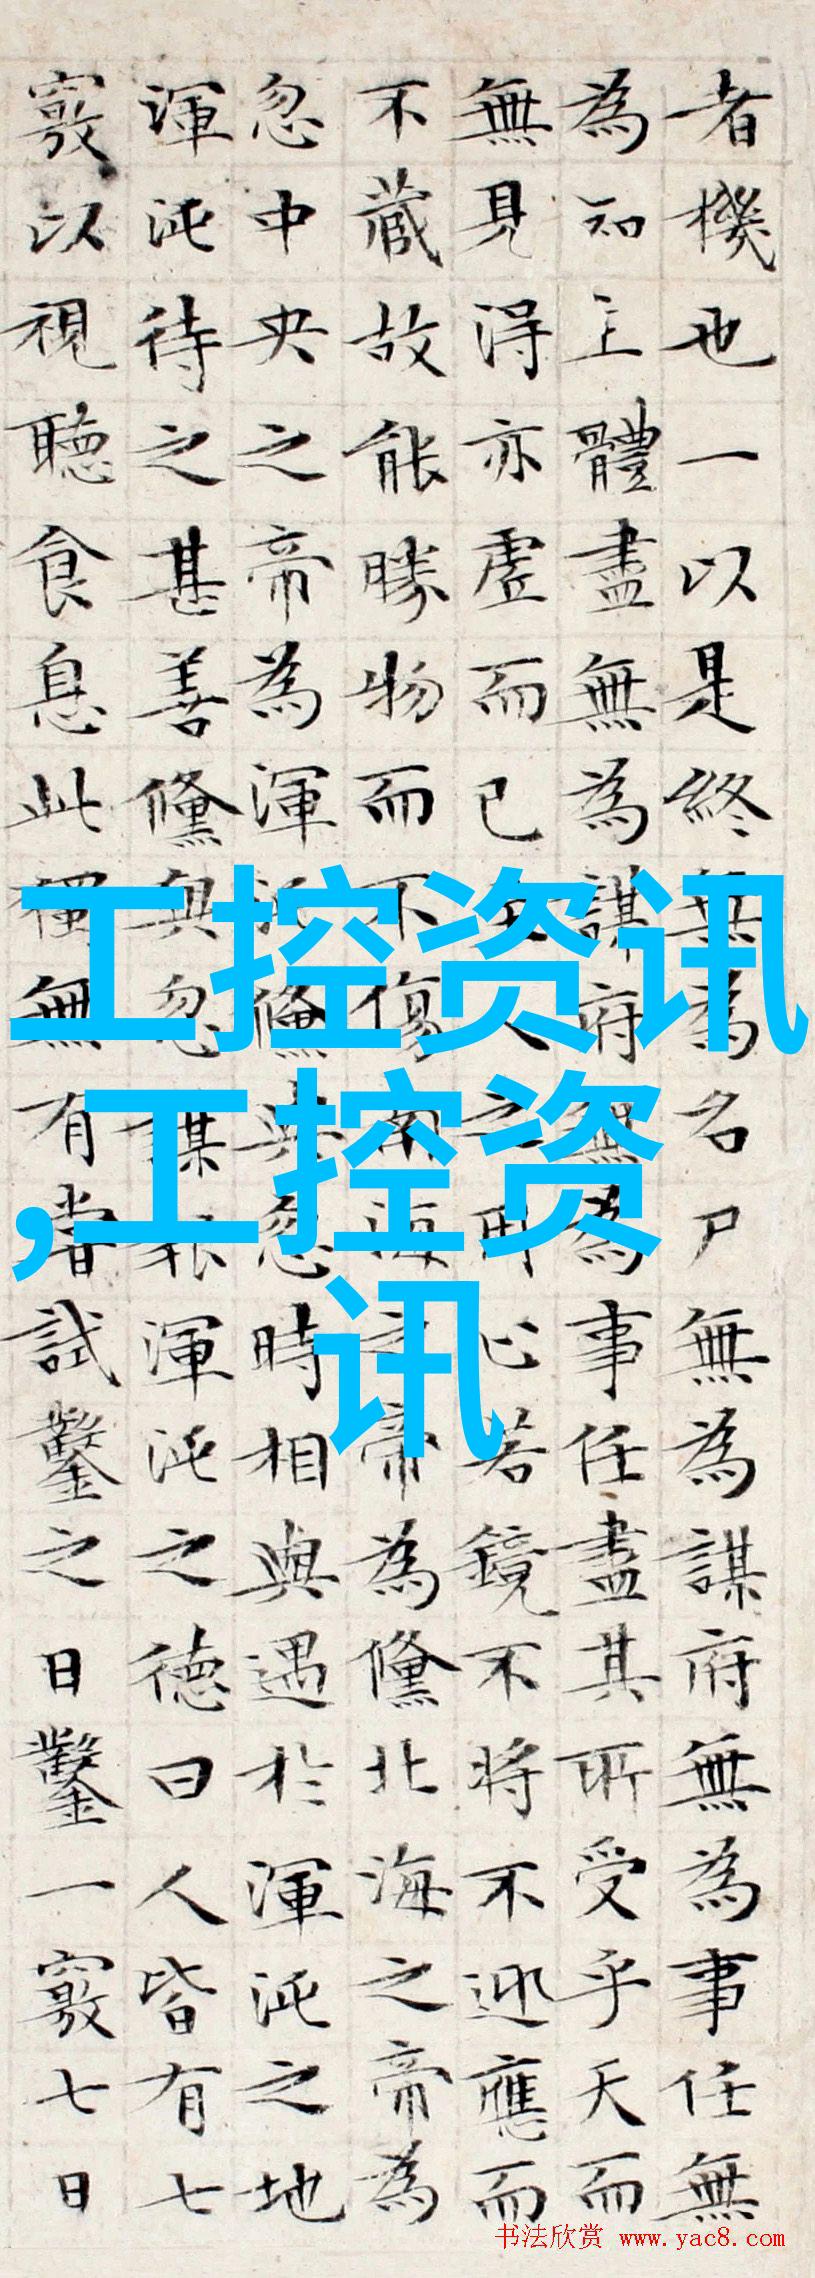 者機也一以是終無為名尸無為謀府無為事任無
為知主體盡無為謀府無為事任盡其所受乎天而
無見得亦虛而已至人之用心若鏡不將不迎應而
不藏故能勝物而不傷南海之帝為儵北海之帝為
忽中央之帝為渾沌儵與忽時相與遇於渾沌之地
渾沌待之甚善儵與忽謀報渾沌之德曰人皆有七
竅以視聽食息此獨無有嘗試鑿之日鑿一竅七日
工控资讯
,工控资
讯
书法欣赏 www.yac8.com